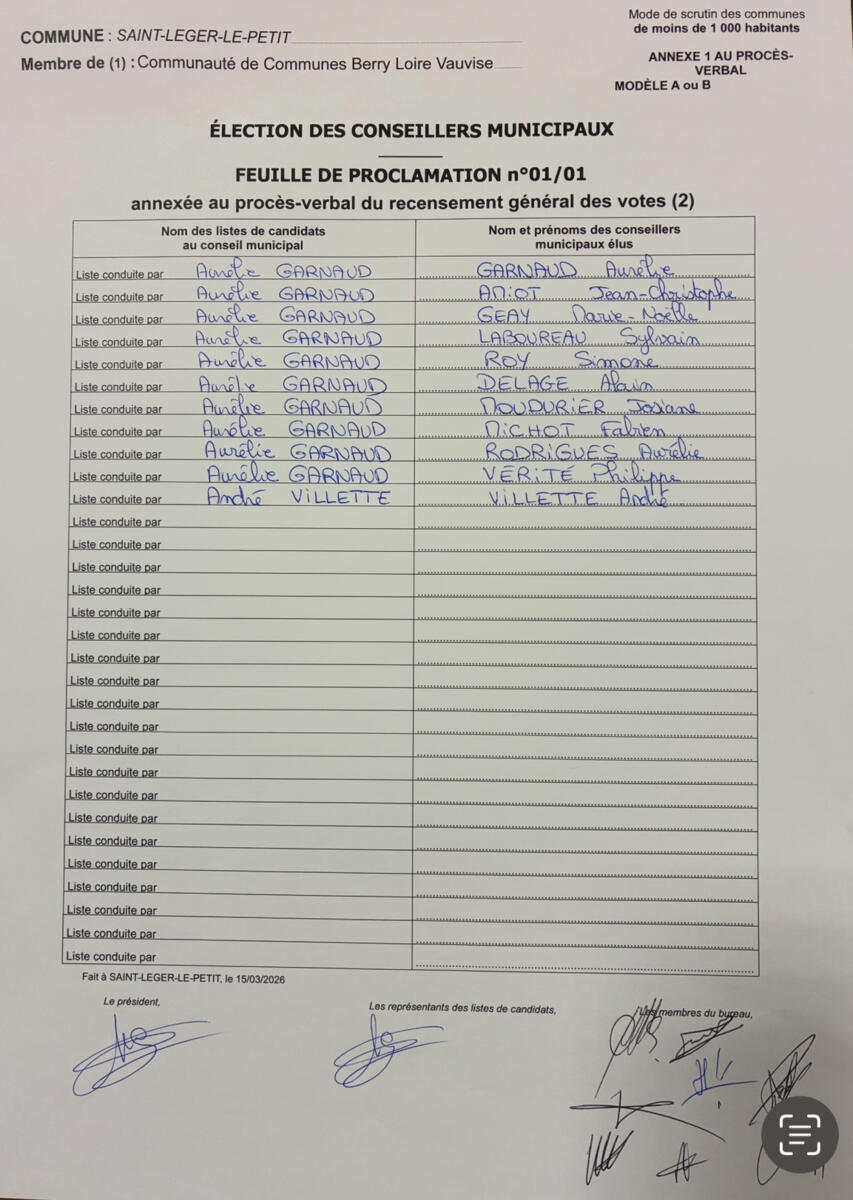 COMMUNE : SAINT-LEGER-LE-PETIT
Membre de (1) : Communauté de Communes Berry Loire Vauvise
Mode de scrutin des communes
de moins de 1 000 habitants
ANNEXE 1 AU PROCÈS-
VERBAL
MODÈLE A ou B
ÉLECTION DES CONSEILLERS MUNICIPAUX
FEUILLE DE PROCLAMATION n°01/01
annexée au procès-verbal du recensement général des votes (2)
Nom des listes de candidats
au conseil municipal
Nom et prénoms des conseillers
municipaux élus
Liste conduite par Aurélie GARNAUD GARNAUD Aurélie
Liste conduite par Aurélie GARNAUD AMIOT Jean-Christophe
Liste conduite par Aurélie GARNAUD GEAY Marie-Noëlle
Liste conduite par Aurélie GARNAUD LABOUREAU Sylvain
Liste conduite par Aurélie GARNAUD ROY Simone
Liste conduite par Aurélie GARNAUD DELAGE Alain
Liste conduite par Aurélie GARNAUD MOUDURIER Josiane
Liste conduite par Aurélie GARNAUD MICHOT Fabien
Liste conduite par Aurélie GARNAUD RODRIGUES Aurélie
Liste conduite par Aurélie GARNAUD VÉRITÉ Philippe
Liste conduite par André VILLETTE VILLETTE André
Liste conduite par
Liste conduite par
Liste conduite par
Liste conduite par
Liste conduite par
Liste conduite par
Liste conduite par
Liste conduite par
Liste conduite par
Liste conduite par
Liste conduite par
Liste conduite par
Liste conduite par
Liste conduite par
Liste conduite par
Liste conduite par
Liste conduite par
Liste conduite par
Liste conduite par
Liste conduite par
Fait à SAINT-LEGER-LE-PETIT, le 15/03/2026
Le président,
Les représentants des listes de candidats,
Les membres du bureau,